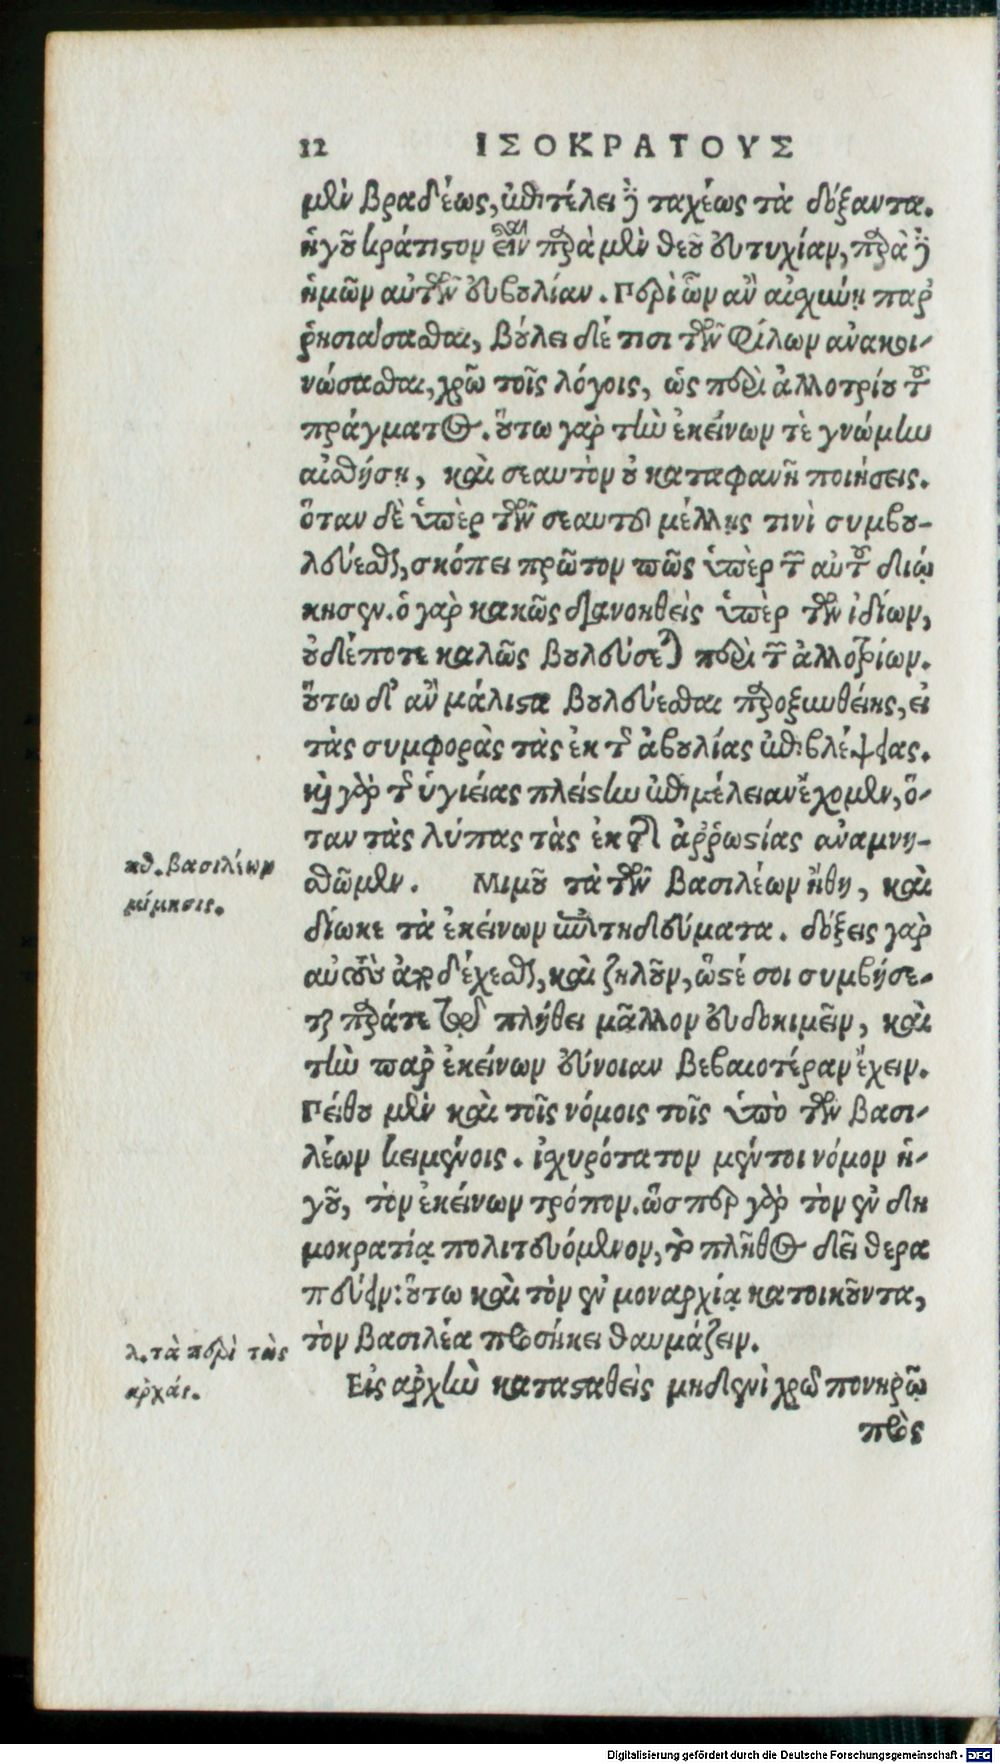 12 ΙΣΟΚΡΑΤΟΥΣ
μὲν βραδέως, ἐπιτέλει δὲ ταχέως τὰ δόξαντα.
ἡγοῦ κράτιστον εἶναι παρὰ μὲν θεοῦ εὐτυχίαν, παρὰ δὲ
ἡμῶν αὐτῶν εὐβουλίαν. Περὶ ὧν ἂν αἰσχύνῃ παῤ
ῥησιάσασθαι, βούλει δέ τισι τῶν φίλων ἀνακοι-
νώσασθαι, χρῶ τοῖς λόγοις, ὡς περὶ ἀλλοτρίου τοῦ
πράγματος. οὕτω γὰρ τὴν ἐκείνων τὲ γνώμην
αἰσθήσῃ, καὶ σεαυτὸν οὐ καταφανῆ ποιήσεις.
ὅταν δὲ ὑπὲρ τῶν σεαυτοῦ μέλλῃς τινὶ συμβου-
λεύεσθαι, σκόπει πρῶτον πῶς ὑπὲρ τῶν αὐτοῦ διῴ
κησεν. ὁ γὰρ κακῶς διανοηθεὶς ὑπὲρ τῶν ἰδίων,
οὐδέποτε καλῶς βουλεύσεται περὶ τῶν ἀλλοτρίων.
οὕτω δ' ἂν μάλιστα βουλεύεσθαι προξυνθείης, εἰ
τὰς συμφορὰς τὰς ἐκ τῆς ἀβουλίας ἐπιβλέψας.
καὶ γὰρ τῆς ὑγιείας πλείστην ἐπιμέλειαν ἔχομεν, ὅ-
ταν τὰς λύπας τὰς ἐκ τῆς ἀῤῥωστίας ἀναμνη-
κθ. βασιλέων
μίμησις.
σθῶμεν. Μιμοῦ τὰ τῶν βασιλέων ἤθη, καὶ
δίωκε τὰ ἐκείνων ἐπιτηδεύματα. δόξεις γὰρ
αὐτοὺς ἀποδέχεσθαι, καὶ ζηλοῦν, ὥστέ σοι συμβήσε-
ται παρά τε τῷ πλήθει μᾶλλον εὐδοκιμεῖν, καὶ
τὴν παρ' ἐκείνων εὔνοιαν βεβαιοτέραν ἔχειν.
Πείθου μὲν καὶ τοῖς νόμοις τοῖς ὑπὸ τῶν βασι-
λέων κειμένοις. ἰσχυρότατον μέντοι νόμον ἡ-
γοῦ, τὸν ἐκείνων τρόπον. ὥσπερ γὰρ τὸν ἐν δη
μοκρατίᾳ πολιτευόμενον, τὸ πλῆθος δεῖ θερα
πεύειν: οὕτω καὶ τὸν ἐν μοναρχίᾳ κατοικοῦντα,
τὸν βασιλέα προσήκει θαυμάζειν.
λ. τὰ περὶ τὰς
ἀρχάς.
Εἰς ἀρχὴν κατασταθεὶς μηδενὶ χρῶ πονηρῷ
πρὸς
Digitalisierung gefördert durch die Deutsche Forschungsgemeinschaft - DFG